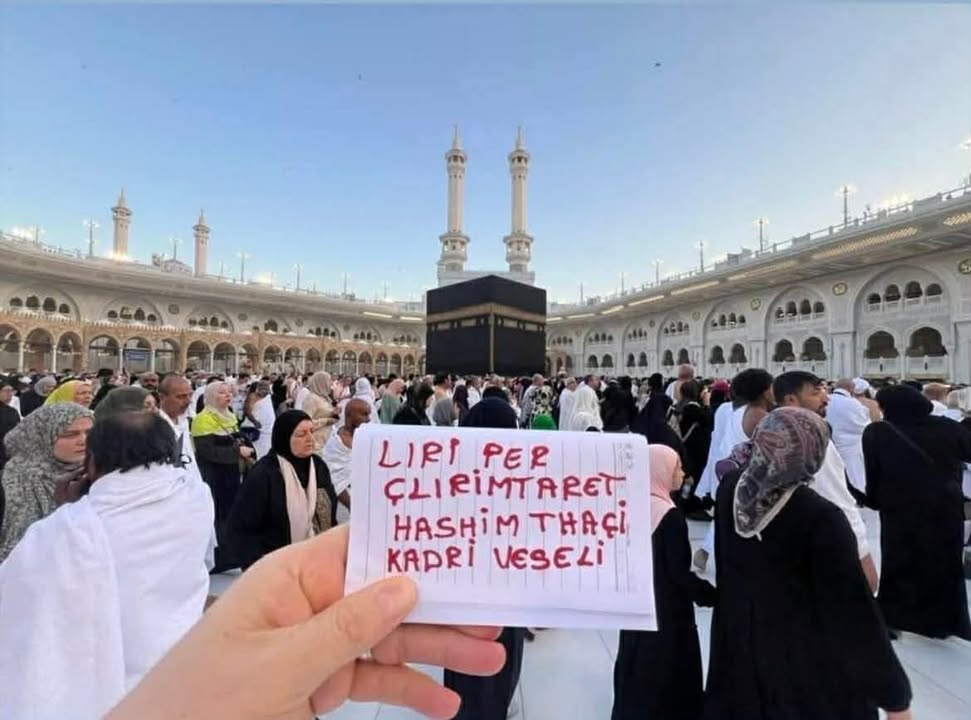 LIRI PER
ÇLIRIMTARET
HASHIM THAÇI
KADRI VESELI